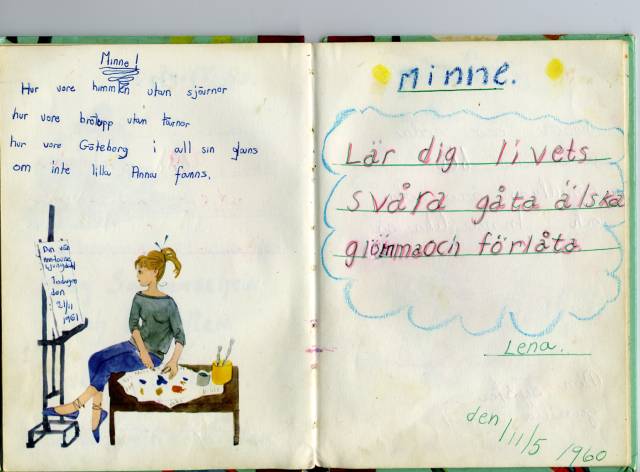 Minne!
Hur vore himmlen utan sjärnor
hur vore brölopp utan tärnor
hur vore Göteborg i all sin glans
om inte lilla Anna fanns.
Din vän
den
21/11
1961
minne.
Lär dig livets
svåra gåta älska
glömmaoch förlåta
Lena.
den 1/11/5 1960